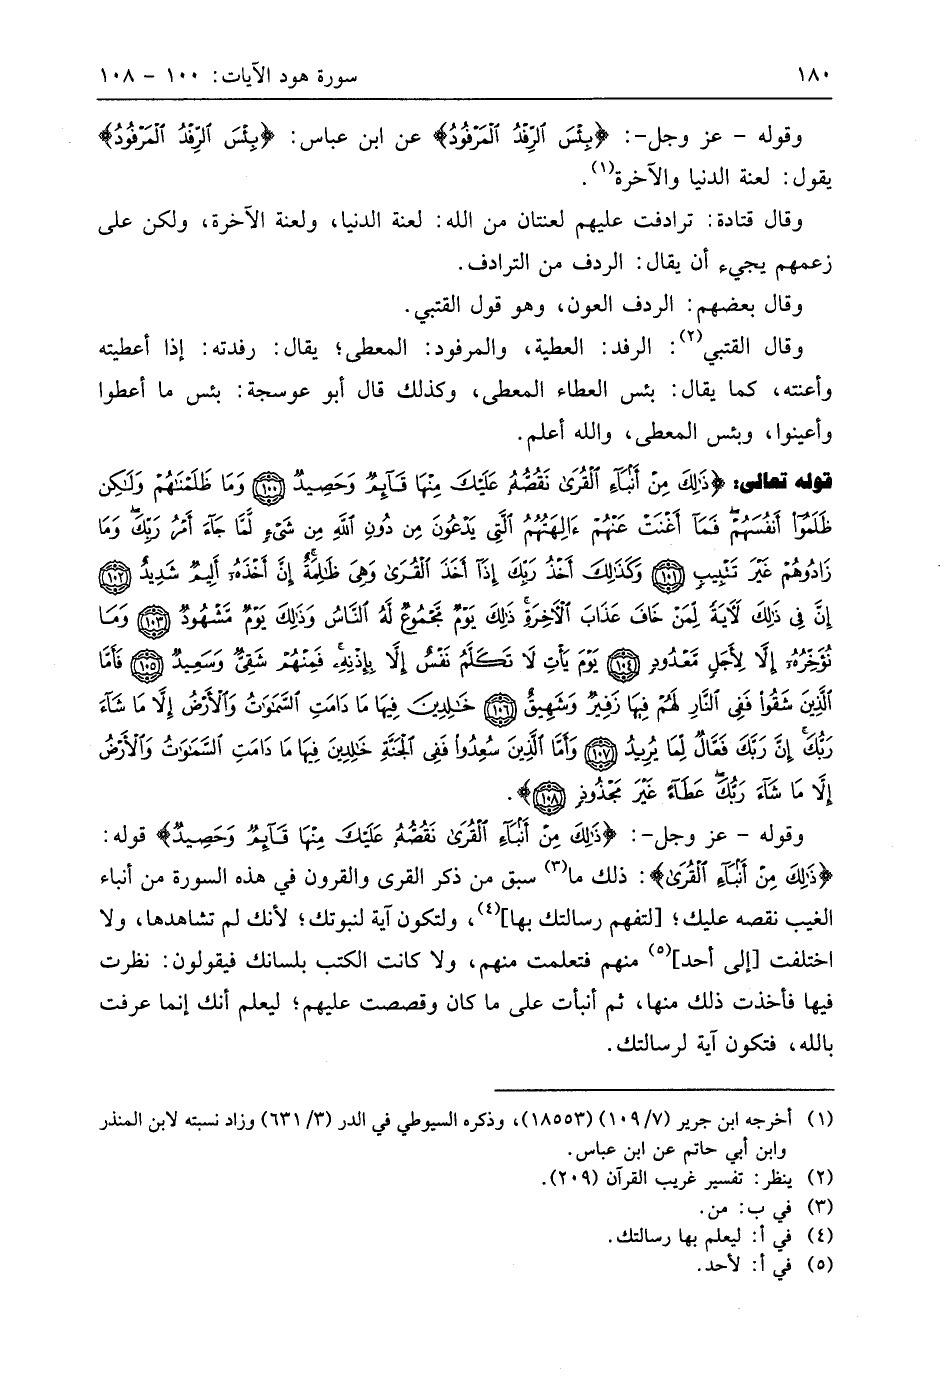 ١٨٠ سورة هود الآيات: ١٠٠ – ١٠٨
وقوله – عز وجل–: ﴿بِئْسَ ٱلرِّفْدُ ٱلْمَرْفُودُ﴾ عن ابن عباس: ﴿بِئْسَ ٱلرِّفْدُ ٱلْمَرْفُودُ﴾
يقول: لعنة الدنيا والآخرة(١).
وقال قتادة: ترادفت عليهم لعنتان من الله: لعنة الدنيا، ولعنة الآخرة، ولكن على
زعمهم يجيء أن يقال: الردف من الترادف.
وقال بعضهم: الردف العون، وهو قول القتبي.
وقال القتبي(٢): الرفد: العطية، والمرفود: المعطى؛ يقال: رفدته: إذا أعطيته
وأعنته، كما يقال: بئس العطاء المعطى، وكذلك قال أبو عوسجة: بئس ما أعطوا
وأعينوا، وبئس المعطى، والله أعلم.
قوله تعالى: ﴿ذَٰلِكَ مِنْ أَنۢبَآءِ ٱلْقُرَىٰ نَقُصُّهُۥ عَلَيْكَ مِنْهَا قَآئِمٌ وَحَصِيدٌ ١٠٠ وَمَا ظَلَمْنَٰهُمْ وَلَٰكِن
ظَلَمُوٓا۟ أَنفُسَهُمْ ۖ فَمَآ أَغْنَتْ عَنْهُمْ ءَالِهَتُهُمُ ٱلَّتِى يَدْعُونَ مِن دُونِ ٱللَّهِ مِن شَىْءٍ لَّمَّا جَآءَ أَمْرُ رَبِّكَ ۖ وَمَا
زَادُوهُمْ غَيْرَ تَتْبِيبٍ ١٠١ وَكَذَٰلِكَ أَخْذُ رَبِّكَ إِذَآ أَخَذَ ٱلْقُرَىٰ وَهِىَ ظَٰلِمَةٌ ۚ إِنَّ أَخْذَهُۥٓ أَلِيمٌ شَدِيدٌ ١٠٢
إِنَّ فِى ذَٰلِكَ لَءَايَةً لِّمَنْ خَافَ عَذَابَ ٱلْءَاخِرَةِ ۚ ذَٰلِكَ يَوْمٌ مَّجْمُوعٌ لَّهُ ٱلنَّاسُ وَذَٰلِكَ يَوْمٌ مَّشْهُودٌ ١٠٣ وَمَا
نُؤَخِّرُهُۥٓ إِلَّا لِأَجَلٍ مَّعْدُودٍ ١٠٤ يَوْمَ يَأْتِ لَا تَكَلَّمُ نَفْسٌ إِلَّا بِإِذْنِهِۦ ۚ فَمِنْهُمْ شَقِىٌّ وَسَعِيدٌ ١٠٥ فَأَمَّا
ٱلَّذِينَ شَقُوا۟ فَفِى ٱلنَّارِ لَهُمْ فِيهَا زَفِيرٌ وَشَهِيقٌ ١٠٦ خَٰلِدِينَ فِيهَا مَا دَامَتِ ٱلسَّمَٰوَٰتُ وَٱلْأَرْضُ إِلَّا مَا شَآءَ
رَبُّكَ ۚ إِنَّ رَبَّكَ فَعَّالٌ لِّمَا يُرِيدُ ١٠٧ وَأَمَّا ٱلَّذِينَ سُعِدُوا۟ فَفِى ٱلْجَنَّةِ خَٰلِدِينَ فِيهَا مَا دَامَتِ ٱلسَّمَٰوَٰتُ وَٱلْأَرْضُ
إِلَّا مَا شَآءَ رَبُّكَ ۖ عَطَآءً غَيْرَ مَجْذُوذٍ ١٠٨﴾.
وقوله – عز وجل–: ﴿ذَٰلِكَ مِنْ أَنۢبَآءِ ٱلْقُرَىٰ نَقُصُّهُۥ عَلَيْكَ مِنْهَا قَآئِمٌ وَحَصِيدٌ﴾ قوله:
﴿ذَٰلِكَ مِنْ أَنۢبَآءِ ٱلْقُرَىٰ﴾: ذلك ما(٣) سبق من ذكر القرى والقرون في هذه السورة من أنباء
الغيب نقصه عليك؛ [لتفهم رسالتك بها](٤)، ولتكون آية لنبوتك؛ لأنك لم تشاهدها، ولا
اختلفت [إلى أحد](٥) منهم فتعلمت منهم، ولا كانت الكتب بلسانك فيقولون: نظرت
فيها فأخذت ذلك منها، ثم أنبأت على ما كان وقصصت عليهم؛ ليعلم أنك إنما عرفت
بالله، فتكون آية لرسالتك.
(١) أخرجه ابن جرير (١٠٩/٧) (١٨٥٥٣)، وذكره السيوطي في الدر (٦٣١/٣) وزاد نسبته لابن المنذر
وابن أبي حاتم عن ابن عباس.
(٢) ينظر: تفسير غريب القرآن (٢٠٩).
(٣) في ب: من.
(٤) في أ: ليعلم بها رسالتك.
(٥) في أ: لأحد.